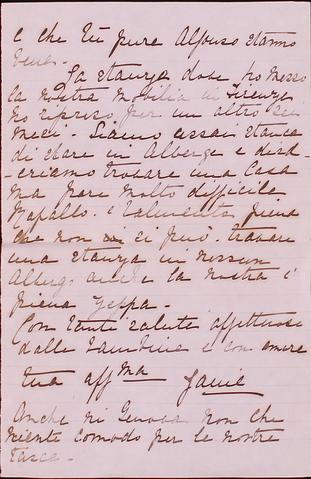 e che tu pure Alfonso stanno
bene.
La stanza dove ho messo
la nostra mobilia in Firenze
ho ripreso per un altro sei
mesi - Siamo assai stanca
di stare in Albergo e desid-
-eriamo trovare una Casa
ma pare molto difficile
Rapallo. è talmente piena
che non si può. trovare
una stanza in nessun
Albergo anche la nostra è
piena zeppa -
Con tanti saluti affettuosi
dalle bambine e con amore
tua aff ma Janie
Anche ni Genova non che
niente comodo per le nostre
tasca -